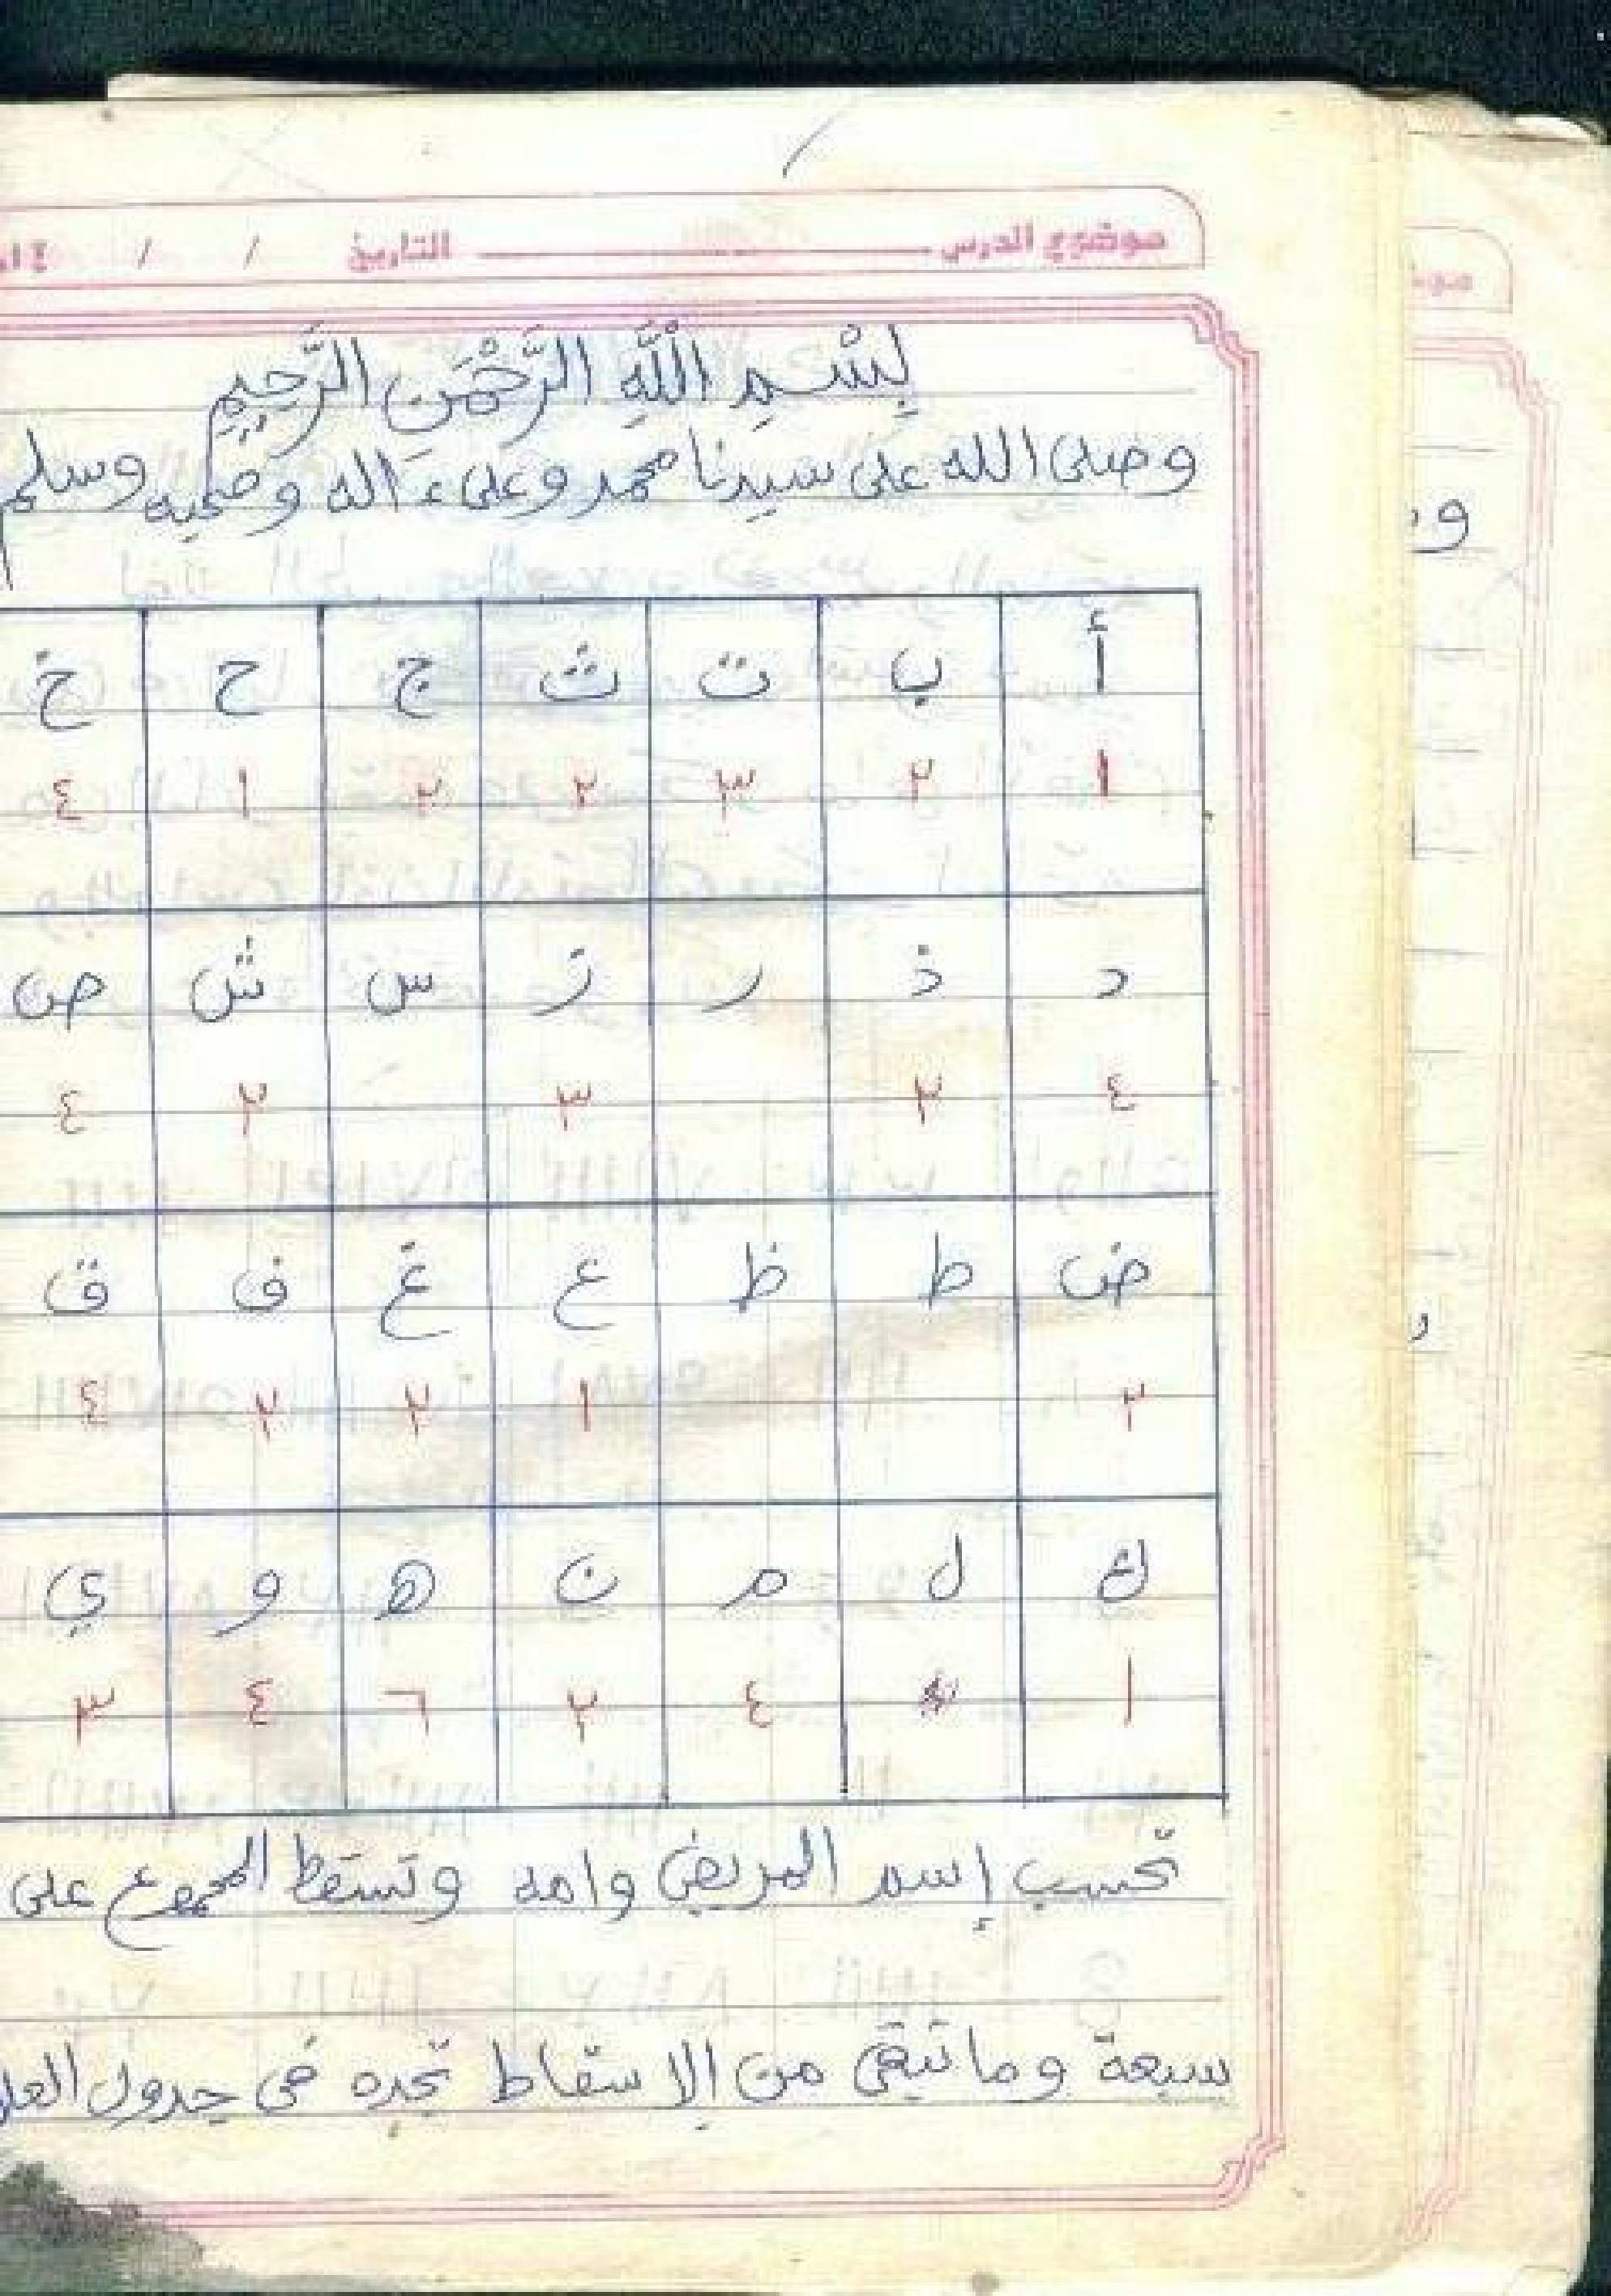 موضوع الدرس التاريخ / /
بِسْمِ اللَّهِ الرَّحْمَنِ الرَّحِيمِ
وصلى الله على سيدنا محمد وعلى ءاله وصحبه وسلم
أ ب ت ث ج ح خ
١ ٢ ٣ ٢ ٢ ١ ٤
د ذ ر ز س ش ص
٤ ٢ ٣ ٢ ٤
ض ط ظ ع غ ف ق
٢ ١ ٢ ٢ ٤
ك ل م ن ه و ي
١ ٤ ٢ ٦ ٤ ٣
تحسب إسم المريض وامه وتسقط المجموع على
سبعة وما تبقى من الإسقاط تجده في جدول